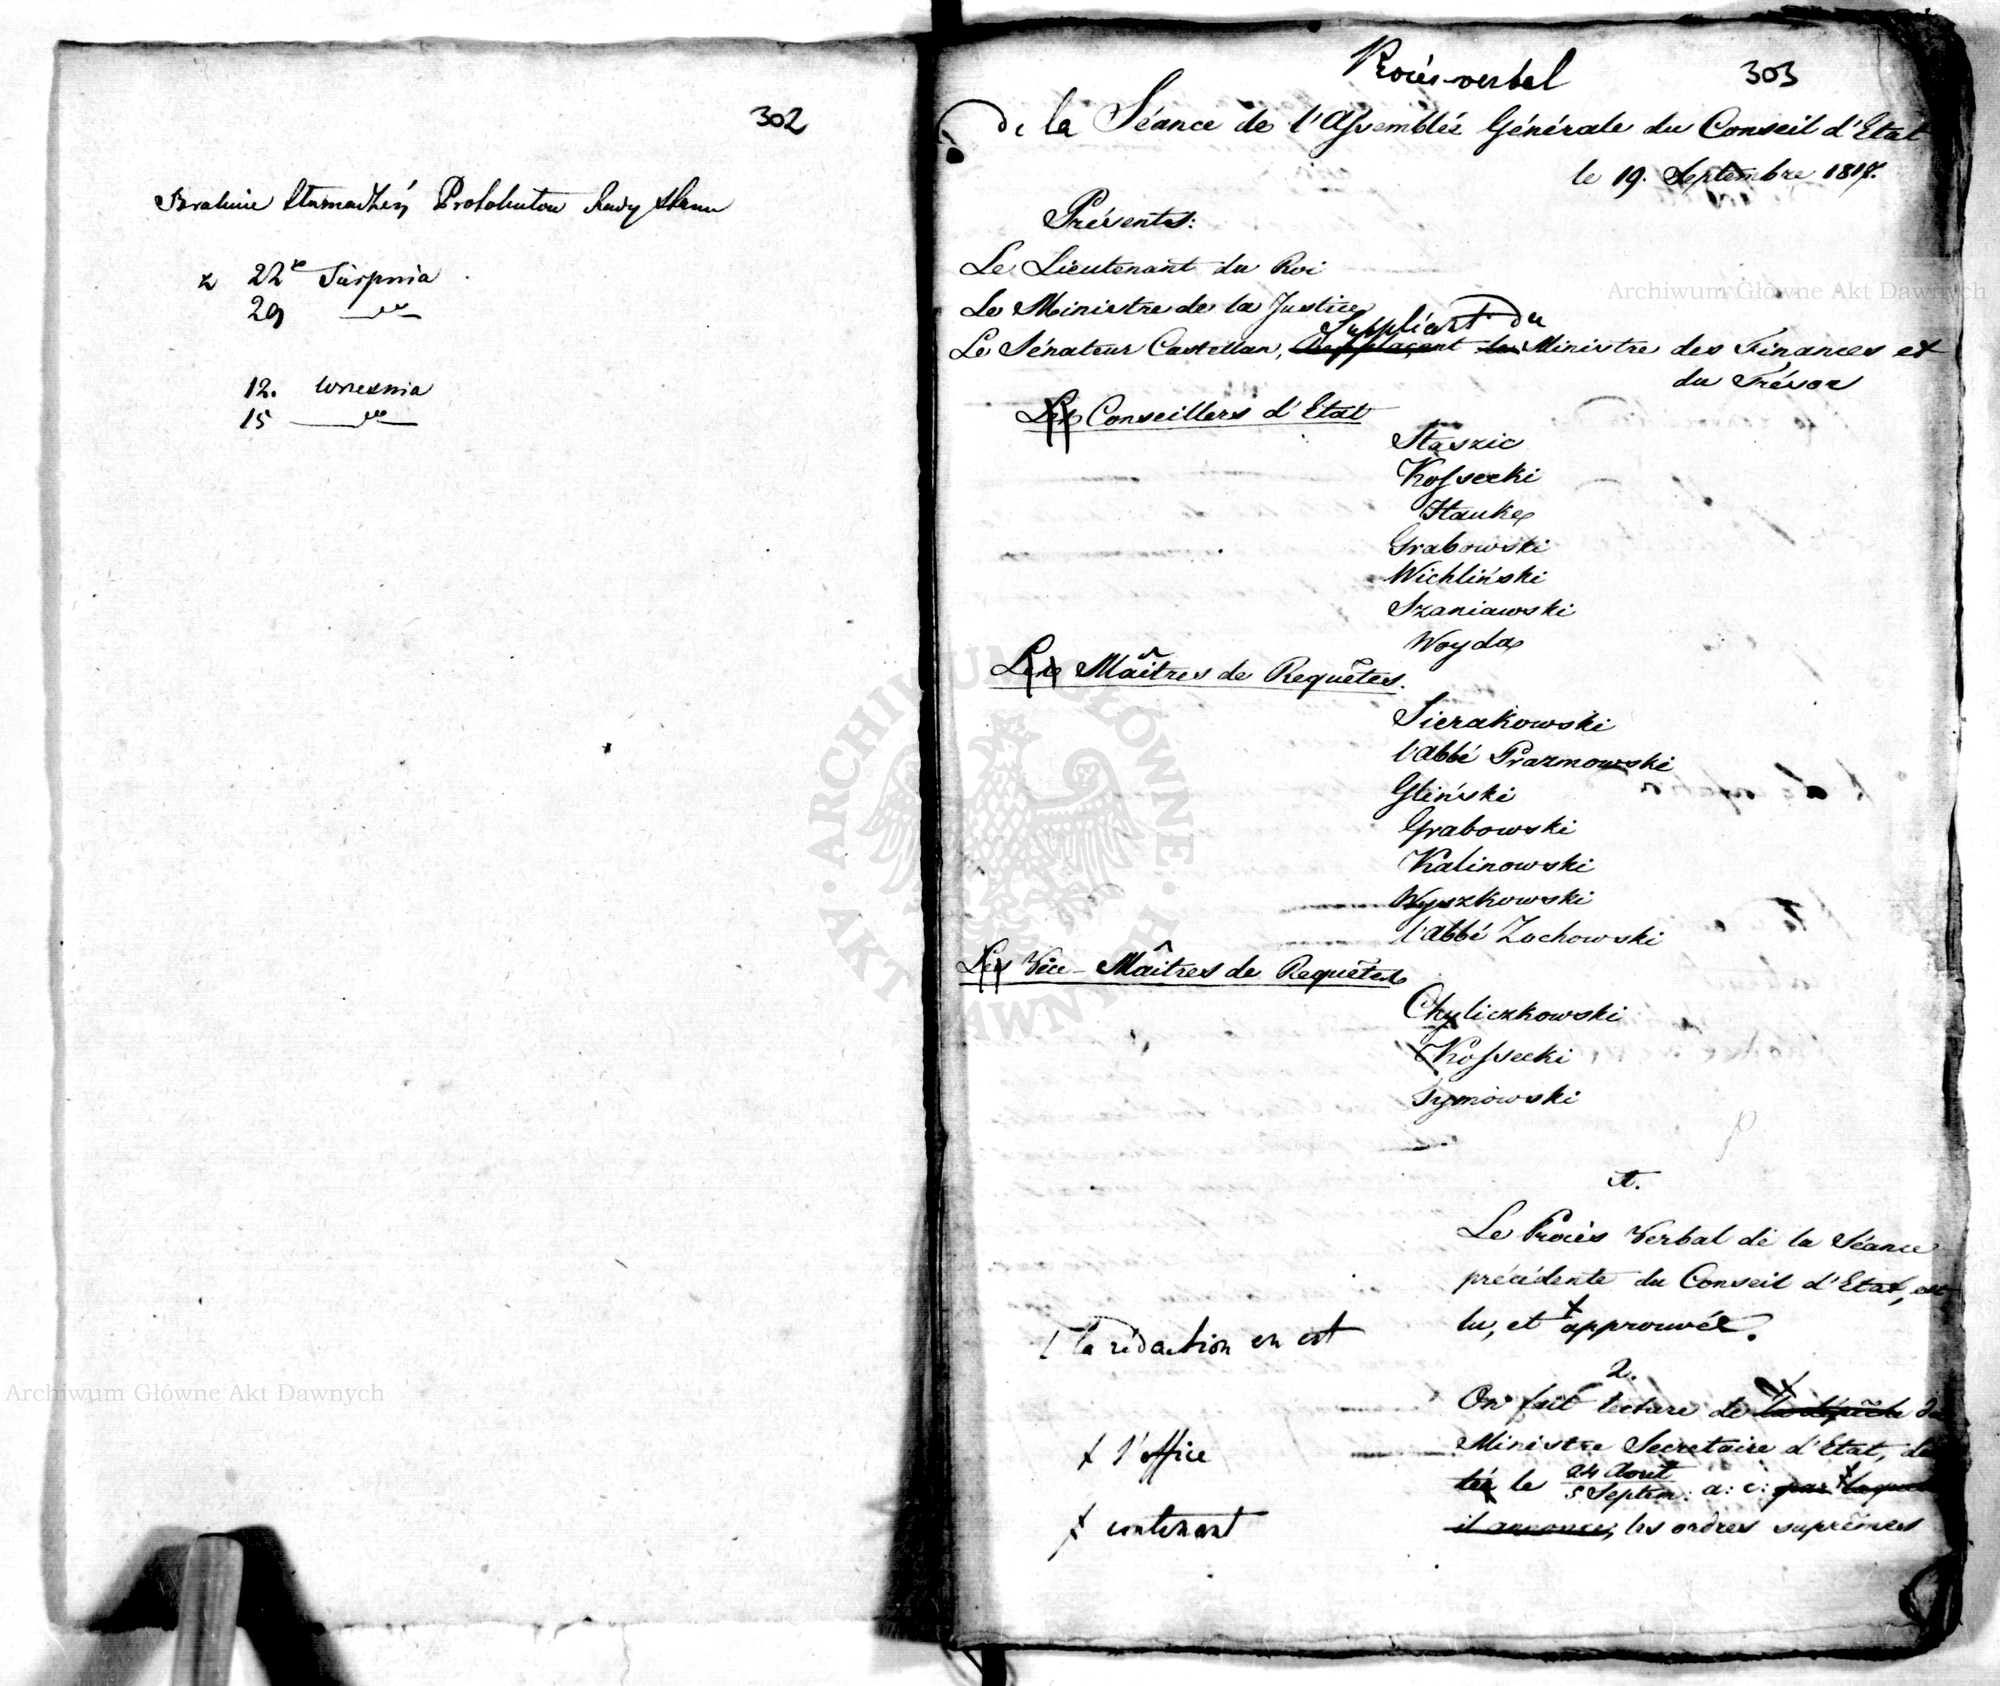 302
Brakuie tłumaczeń Protokułow Rady Stanu
z 22º Sierpnia
29 _dto_
12. Września
15 _dto_
303
Procès-verbal
de la Séance de l'Assemblée Générale du Conseil d'Etat
le 19. Septembre 1817.
Présents:
Le Lieutenant du Roi
Le Ministre de la Justice
Suppléant du
Le Sénateur Castellan, Remplaçant le Ministre des Finances et
du Trésor
Les Conseillers d'Etat
Staszic
Kossecki
Hauke
Grabowski
Wichliński
Szaniawski
Woyda
Les Maîtres de Requêtes.
Sierakowski
l'abbé Prazmowski
Gliński
Grabowski
Kalinowski
Wyszkowski
l'abbé Zochowski
Les Vice-Maîtres de Requêtes
Chyliczkowski
Kossecki
Tymowski
1.
Le Procès Verbal de la Séance
précédente du Conseil d'Etat, est
lu, et approuvée.
la rédaction en est
2.
On fait lecture de la dépêche du
Ministre Secretaire d'Etat, da
tée le 24 Aout / 5 Septem: a: c: par laquelle
il annonce, les ordres suprêmes
l'office
contenant
Archiwum Główne Akt Dawnych
Archiwum Główne Akt Dawnych
ARCHIWUM GŁÓWNE AKT DAWNYCH